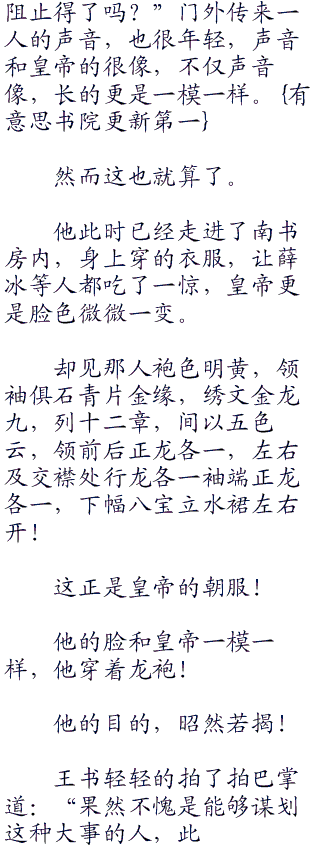 阻止得了吗？”门外传来一
人的声音，也很年轻，声音
和皇帝的很像，不仅声音
像，长的更是一模一样。{有
意思书院更新第一}
然而这也就算了。
他此时已经走进了南书
房内，身上穿的衣服，让薛
冰等人都吃了一惊，皇帝更
是脸色微微一变。
却见那人袍色明黄，领
袖俱石青片金缘，绣文金龙
九，列十二章，间以五色
云，领前后正龙各一，左右
及交襟处行龙各一袖端正龙
各一，下幅八宝立水裙左右
开！
这正是皇帝的朝服！
他的脸和皇帝一模一
样，他穿着龙袍！
他的目的，昭然若揭！
王书轻轻的拍了拍巴掌
道：“果然不愧是能够谋划
这种大事的人，此